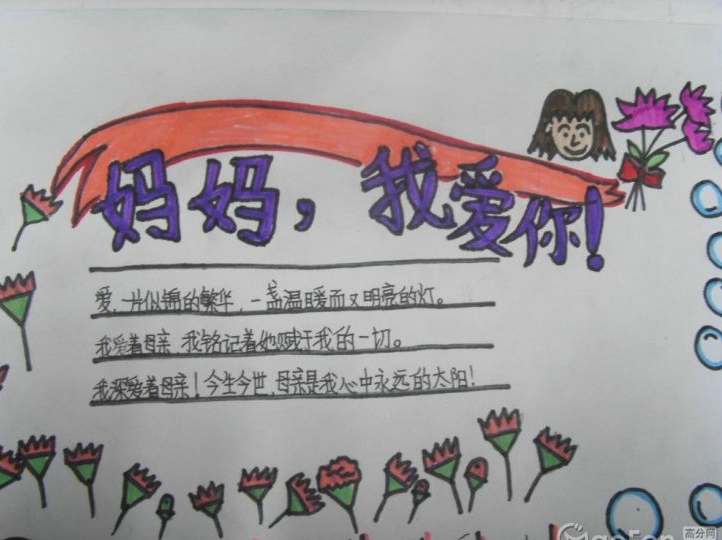 妈妈，我爱你！
爱，一片似锦的繁华，一盏温暖而又明亮的灯。
我爱着母亲，我铭记着她赋于我的一切。
我深爱着母亲！今生今世，母亲是我心中永远的太阳！
高分网